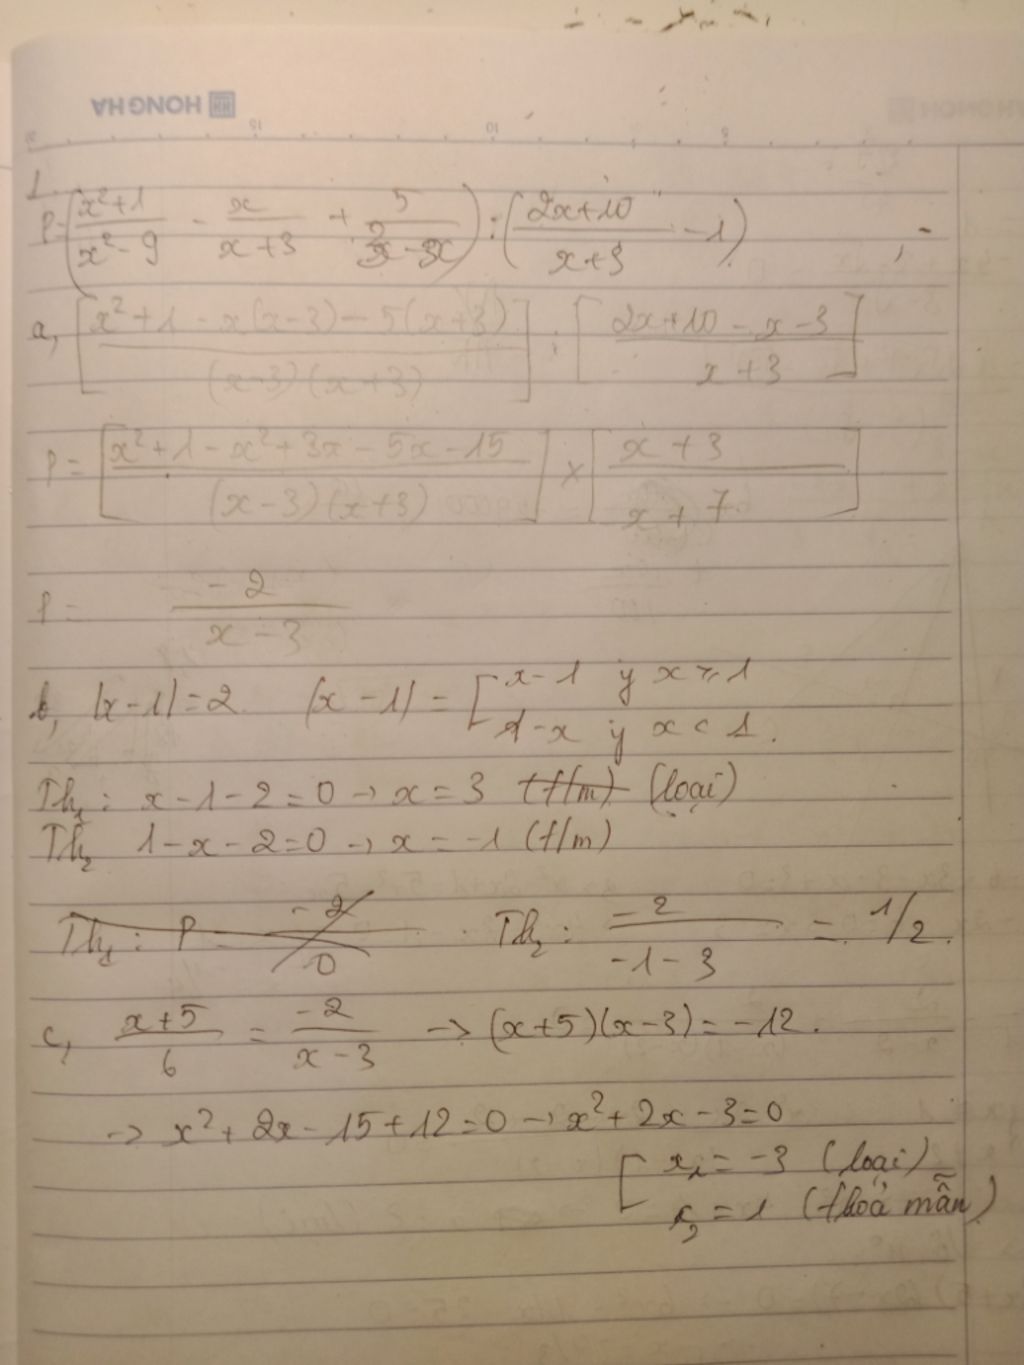 HONG HA
15 10 5
1.
P=(x²+1/x²-9 - x/x+3 + 5/3-x) : (2x+10/x+3 - 1)
a, [x²+1-x(x-3)-5(x+3)/(x-3)(x+3)] : [2x+10-x-3/x+3]
P= [x²+1-x²+3x-5x-15/(x-3)(x+3)] × [x+3/x+7]
P= -2/x-3
b, |x-1|=2. |x-1| = [x-1 y x≥1
1-x y x<1.
Th₁: x-1-2=0 → x=3 (t/m) (loại)
Th₂ 1-x-2=0 → x=-1 (t/m)
Th₁: P= -2/0 Th₂: -2/-1-3 = 1/2.
c, x+5/6 = -2/x-3 → (x+5)(x-3)=-12.
→ x²+2x-15+12=0 → x²+2x-3=0
[x₁=-3 (loại)
x₂=1 (thoả mãn)